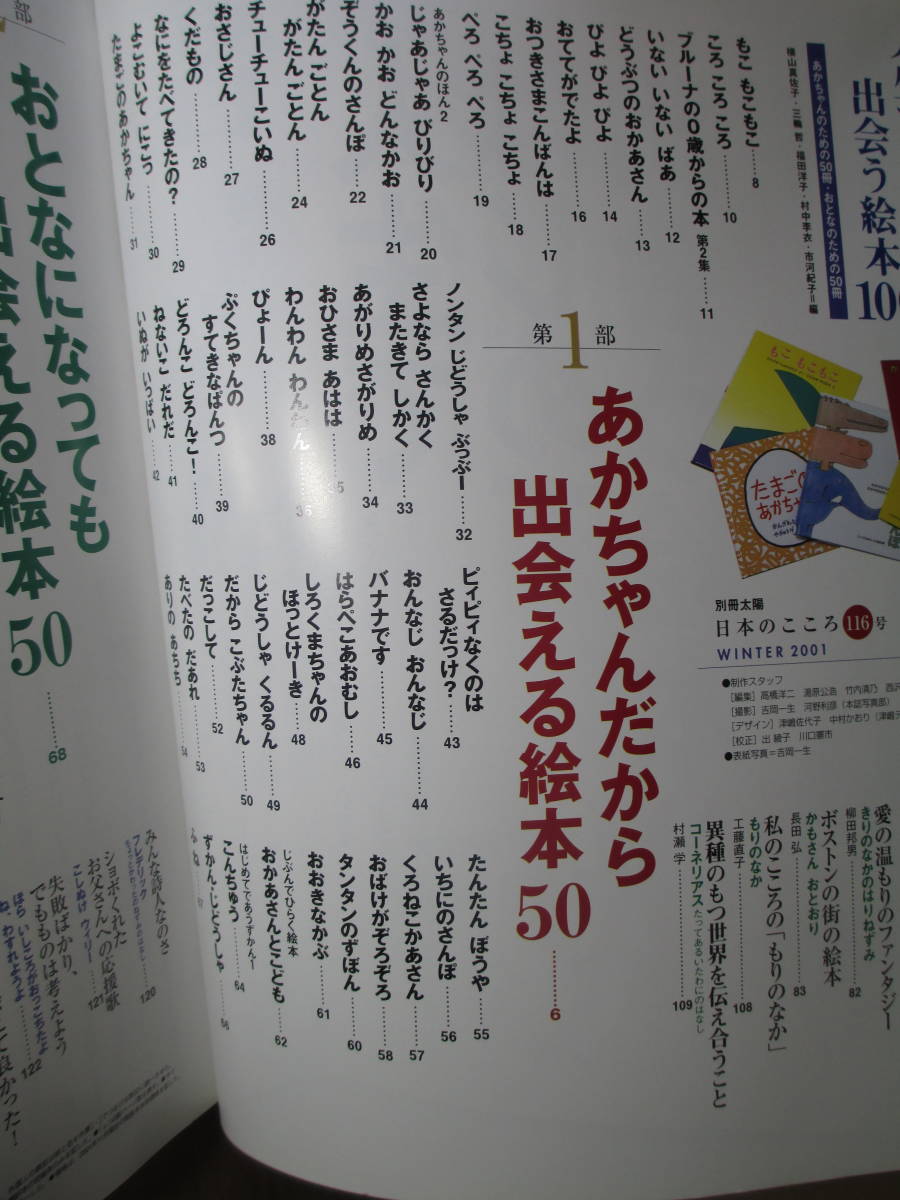 出会う絵本100
あかちゃんのための50冊・おとなのための50冊
横山真佐子・三輪 哲・福田洋子・村中李衣・市河紀子=編
もこ もこもこ
たまごの
あかちゃん
別冊太陽
日本のこころ 116号
WINTER 2001
●制作スタッフ
[編集] 高橋洋二 湯原公浩 竹内清乃
[撮影] 吉岡一生 河野利彦(本誌写真部)
[デザイン] 津嶋佐代子 中村かおり
[校正] 出 綾子 川口憲市
●表紙写真=吉岡一生
第1部
あかちゃんだから
出会える絵本50 …… 6
もこ もこもこ …… 8
ころ ころ ころ …… 10
ブルーナの0歳からの本 第2集 …… 11
いない いない ばあ …… 12
どうぶつのおかあさん …… 13
ぴよ ぴよ ぴよ …… 14
おててがでたよ …… 16
おつきさまこんばんは …… 17
こちょ こちょ こちょ …… 18
ぺろ ぺろ ぺろ …… 19
あかちゃんのほん2
じゃあじゃあ びりびり …… 20
かお かお どんなかお …… 21
ぞうくんのさんぽ …… 22
がたん ごとん
がたん ごとん …… 24
チューチューこいぬ …… 26
おさじさん …… 27
くだもの …… 28
なにをたべてきたの? …… 29
よこむいて にこっ …… 30
たまごのあかちゃん …… 31
ノンタン じどうしゃ ぶっぶー …… 32
さよなら さんかく
またきて しかく …… 33
あがりめさがりめ …… 34
おひさま あはは …… 35
わんわん わんわん …… 36
ぴょーん …… 38
ぷくちゃんの
すてきなぱんつ …… 39
どろんこ どろんこ! …… 40
ねないこ だれだ …… 41
いぬが いっぱい …… 42
ピィピィなくのは
さるだっけ? …… 43
おんなじ おんなじ …… 44
バナナです …… 45
はらぺこあおむし …… 46
しろくまちゃんの
ほっとけーき …… 48
じどうしゃ くるるん …… 49
だから こぶたちゃん …… 50
だっこして …… 52
たべたの だあれ …… 53
ありの あちち …… 54
たんたん ぼうや …… 55
いちにのさんぽ …… 56
くろねこかあさん …… 57
おばけがぞろぞろ …… 58
タンタンのずぼん …… 60
おおきなかぶ …… 61
じぶんでひらく絵本
おかあさんとこども …… 62
はじめてであうずかん1
こんちゅう …… 64
ずかん・じどうしゃ …… 66
ふね …… 67
愛の温もりのファンタジー
きりのなかのはりねずみ
柳田邦男 …… 82
ボストンの街の絵本
かもさん おとおり
長田 弘 …… 83
私のこころの「もりのなか」
もりのなか
工藤直子 …… 108
異種のもつ世界を伝え合うこと
コーネリアス たってあるいたわにのはなし
村瀬 学 …… 109
部
おとなになっても
出会える絵本50 …… 68
みんな詩人なのさ
フレデリック …… 120
ショボくれた
お父さんへの応援歌
こしぬけ ウィリー …… 121
失敗ばかり、
でもものは考えよう
ほら いしころがおっこちたよ
ね、わすれようよ …… 122
て良かった!